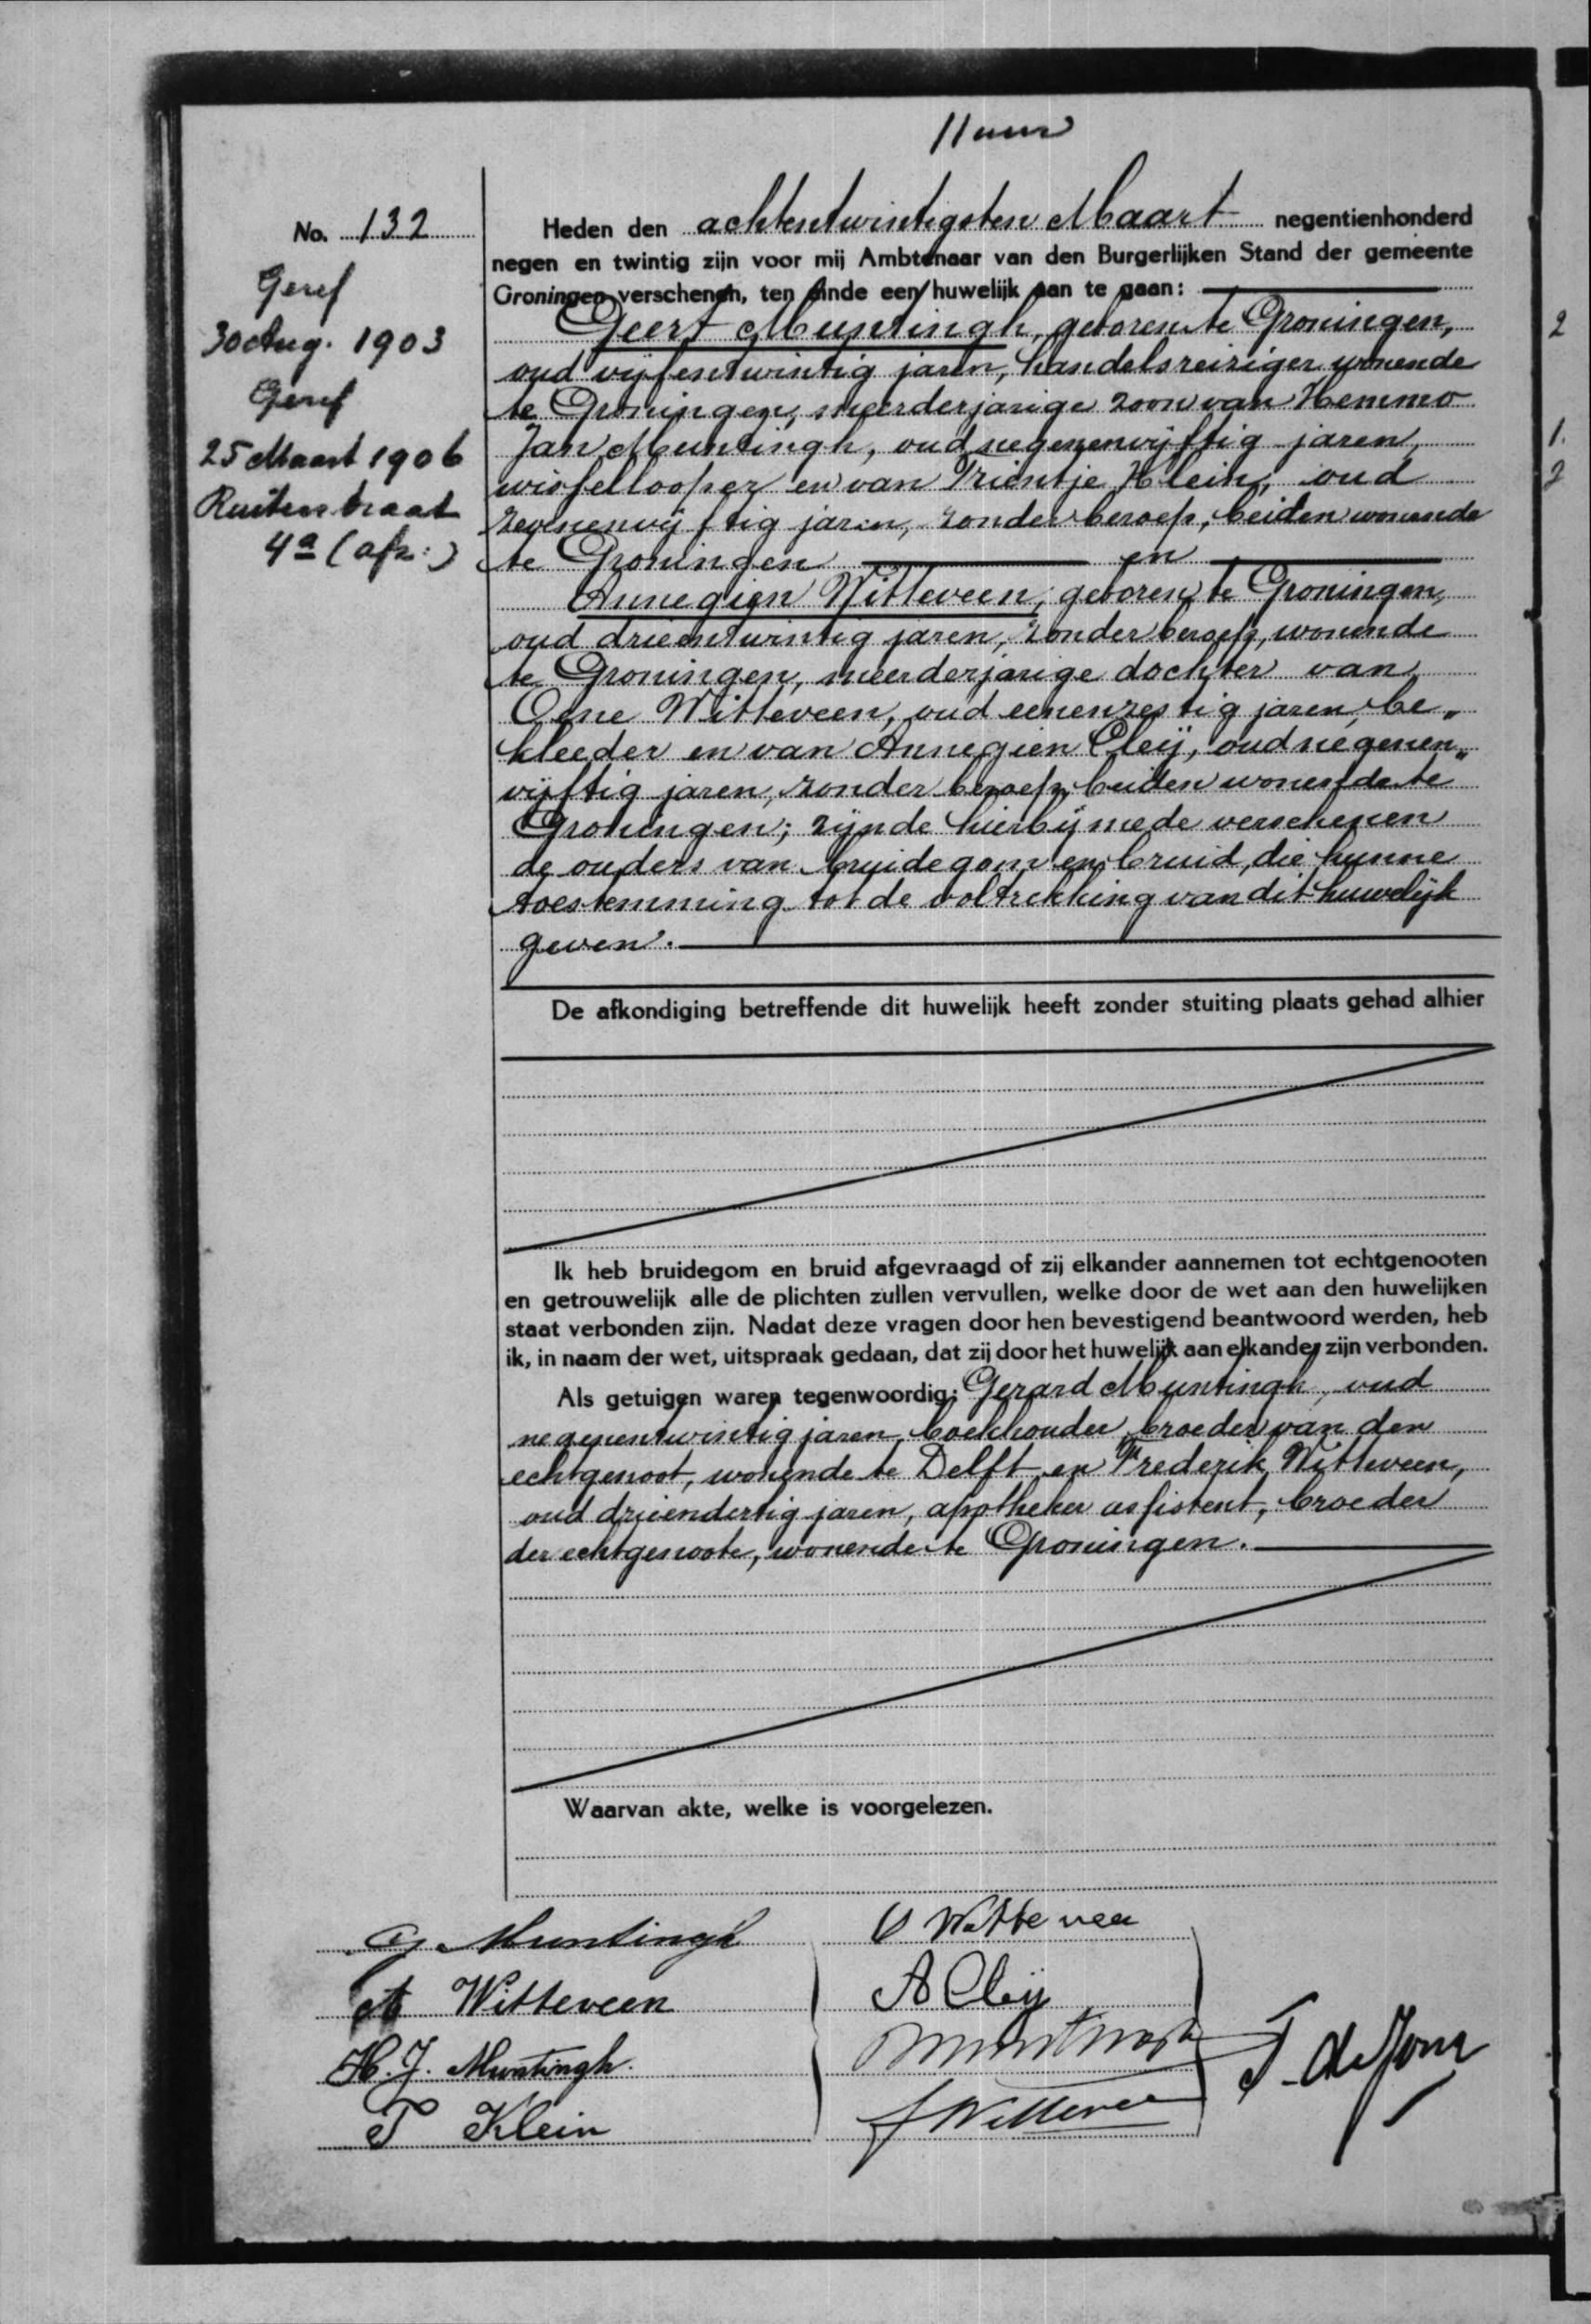 11 uur
No. 132
Geref
30 Aug. 1903
Geref
25 Maart 1906
Ruiterstraat
4a (afz:)
Heden den achtentwintigsten Maart negentienhonderd
negen en twintig zijn voor mij Ambtenaar van den Burgerlijken Stand der gemeente
Groningen verschenen, ten einde een huwelijk aan te gaan:
Geert Muntingh, geboren te Groningen,
oud vijfentwintig jaren, handelsreiziger wonende
te Groningen, meerderjarige zoon van Hemmo
Jan Muntingh, oud negenenvijftig jaren,
wissellooper en van Trientje Klein, oud
zevenenvijftig jaren, zonder beroep, beiden wonende
te Groningen en
Annegien Witteveen, geboren te Groningen,
oud drieentwintig jaren, zonder beroep, wonende
te Groningen, meerderjarige dochter van
Oene Witteveen, oud eenenzestig jaren, be„
kleeder en van Annegien Cleij, oud negenen„
vijftig jaren, zonder beroep, beiden wonende te
Groningen; zijnde hierbij mede verschenen
de ouders van bruidegom en bruid, die hunne
toestemming tot de voltrekking van dit huwelijk
geven.
De afkondiging betreffende dit huwelijk heeft zonder stuiting plaats gehad alhier
Ik heb bruidegom en bruid afgevraagd of zij elkander aannemen tot echtgenooten
en getrouwelijk alle de plichten zullen vervullen, welke door de wet aan den huwelijken
staat verbonden zijn. Nadat deze vragen door hen bevestigend beantwoord werden, heb
ik, in naam der wet, uitspraak gedaan, dat zij door het huwelijk aan elkander zijn verbonden.
Als getuigen waren tegenwoordig: Gerard Muntingh, oud
negenentwintig jaren, boekhouder, broeder van den
echtgenoot, wonende te Delft en Frederik Witteveen,
oud drieendertig jaren, apotheker assistent, broeder
der echtgenoote, wonende te Groningen.
Waarvan akte, welke is voorgelezen.
G. Muntingh
A Witteveen
H. J. Muntingh.
T Klein
O Witteveen
A Cleij
F Witteveen
2
1.
2